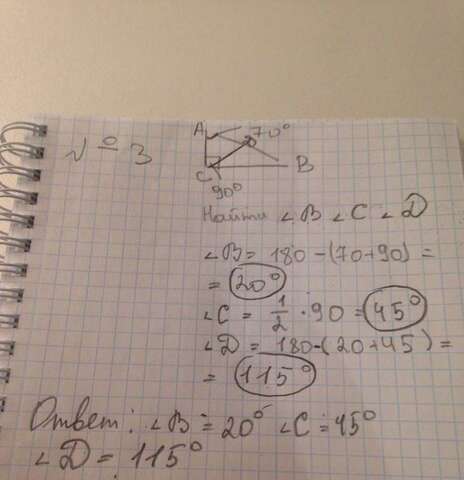 № 3
A 70°
C B
90°
Найти ∠B ∠C ∠D
∠B = 180 - (70+90) =
= 20°
∠C = 1/2 · 90 = 45°
∠D = 180-(20+45) =
= 115°
Ответ: ∠B = 20° ∠C = 45°
∠D = 115°